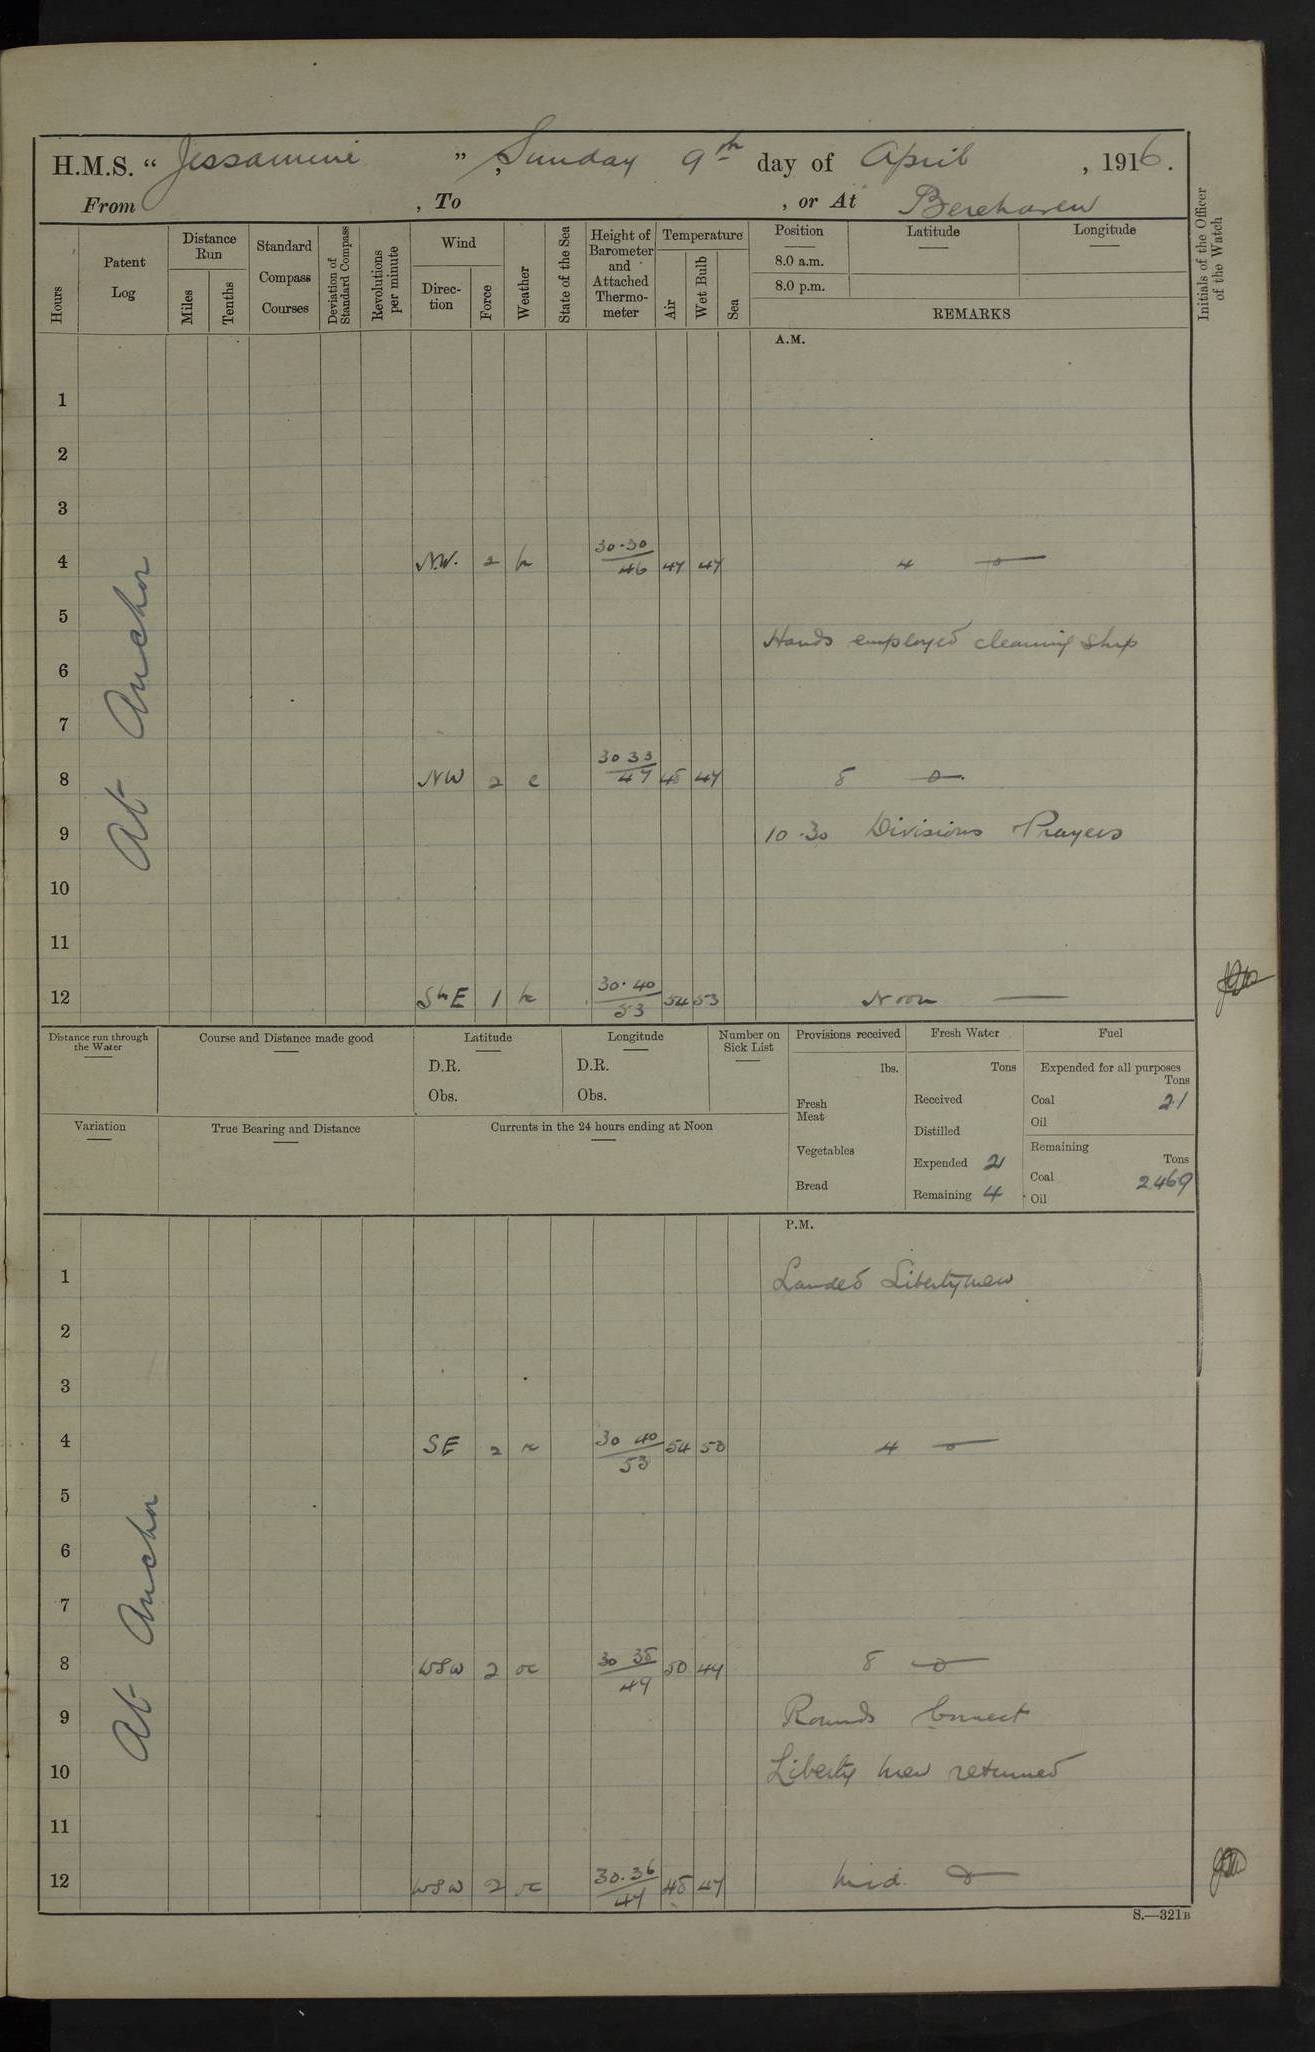 H.M.S. “ Jessamine ” , Sunday 9th day of April , 1916.
From , To , or At Berehaven
Hours
Patent Log
Distance Run
Miles
Tenths
Standard Compass Courses
Deviation of Standard Compass
Revolutions per minute
Wind
Direction
Force
Weather
State of the Sea
Height of Barometer and Attached Thermometer
Temperature
Air
Wet Bulb
Sea
Position
8.0 a.m.
8.0 p.m.
Latitude
Longitude
REMARKS
Initials of the Officer of the Watch
A.M.
At Anchor
1
2
3
4 N.W. 2 30.30 / 46 47 47 4
5
Hands employed cleaning Ship
6
7
8 NW 2 c 30 33 / 47 48 47 8
9 10.30 Divisions Prayers
10
11
12 1 30.40 / 53 54 53 Noon
Distance run through the Water
Course and Distance made good
Latitude
D.R.
Obs.
Longitude
D.R.
Obs.
Number on Sick List
Variation
True Bearing and Distance
Currents in the 24 hours ending at Noon
Provisions received
lbs.
Fresh Meat
Vegetables
Bread
Fresh Water
Tons
Received
Distilled
Expended 2
Remaining 4
Fuel
Expended for all purposes
Tons
Coal 21
Oil
Remaining
Tons
Coal 2469
Oil
P.M.
At Anchor
1 Landed Libertymen
2
3
4 SE 2 30 40 / 53 54 53 4
5
6
7
8 WSW 2 oc 30 38 / 49 50 49 8
9 Rounds Correct
10 Liberty men returned
11
12 WSW 2 oc 30.36 / 47 48 47 Mid.
S.—321B